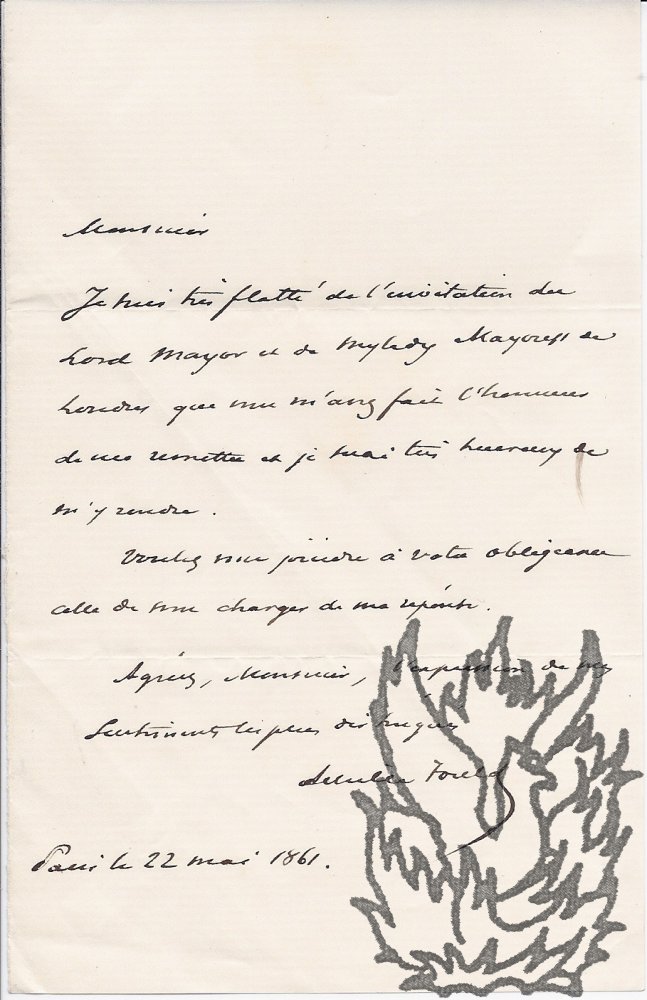 Monsieur
Je suis très flatté de l'invitation du
Lord Mayor et de Mylady Mayoress de
Londres que vous m'avez fait l'honneur
de me remettre et je serai très heureux de
m'y rendre.
Veuillez joindre à votre obligeance
celle de vous charger de ma réponse.
Agréez, Monsieur, l'expression de mes
Sentiments les plus distingués
Fould
Paris le 22 mai 1861.